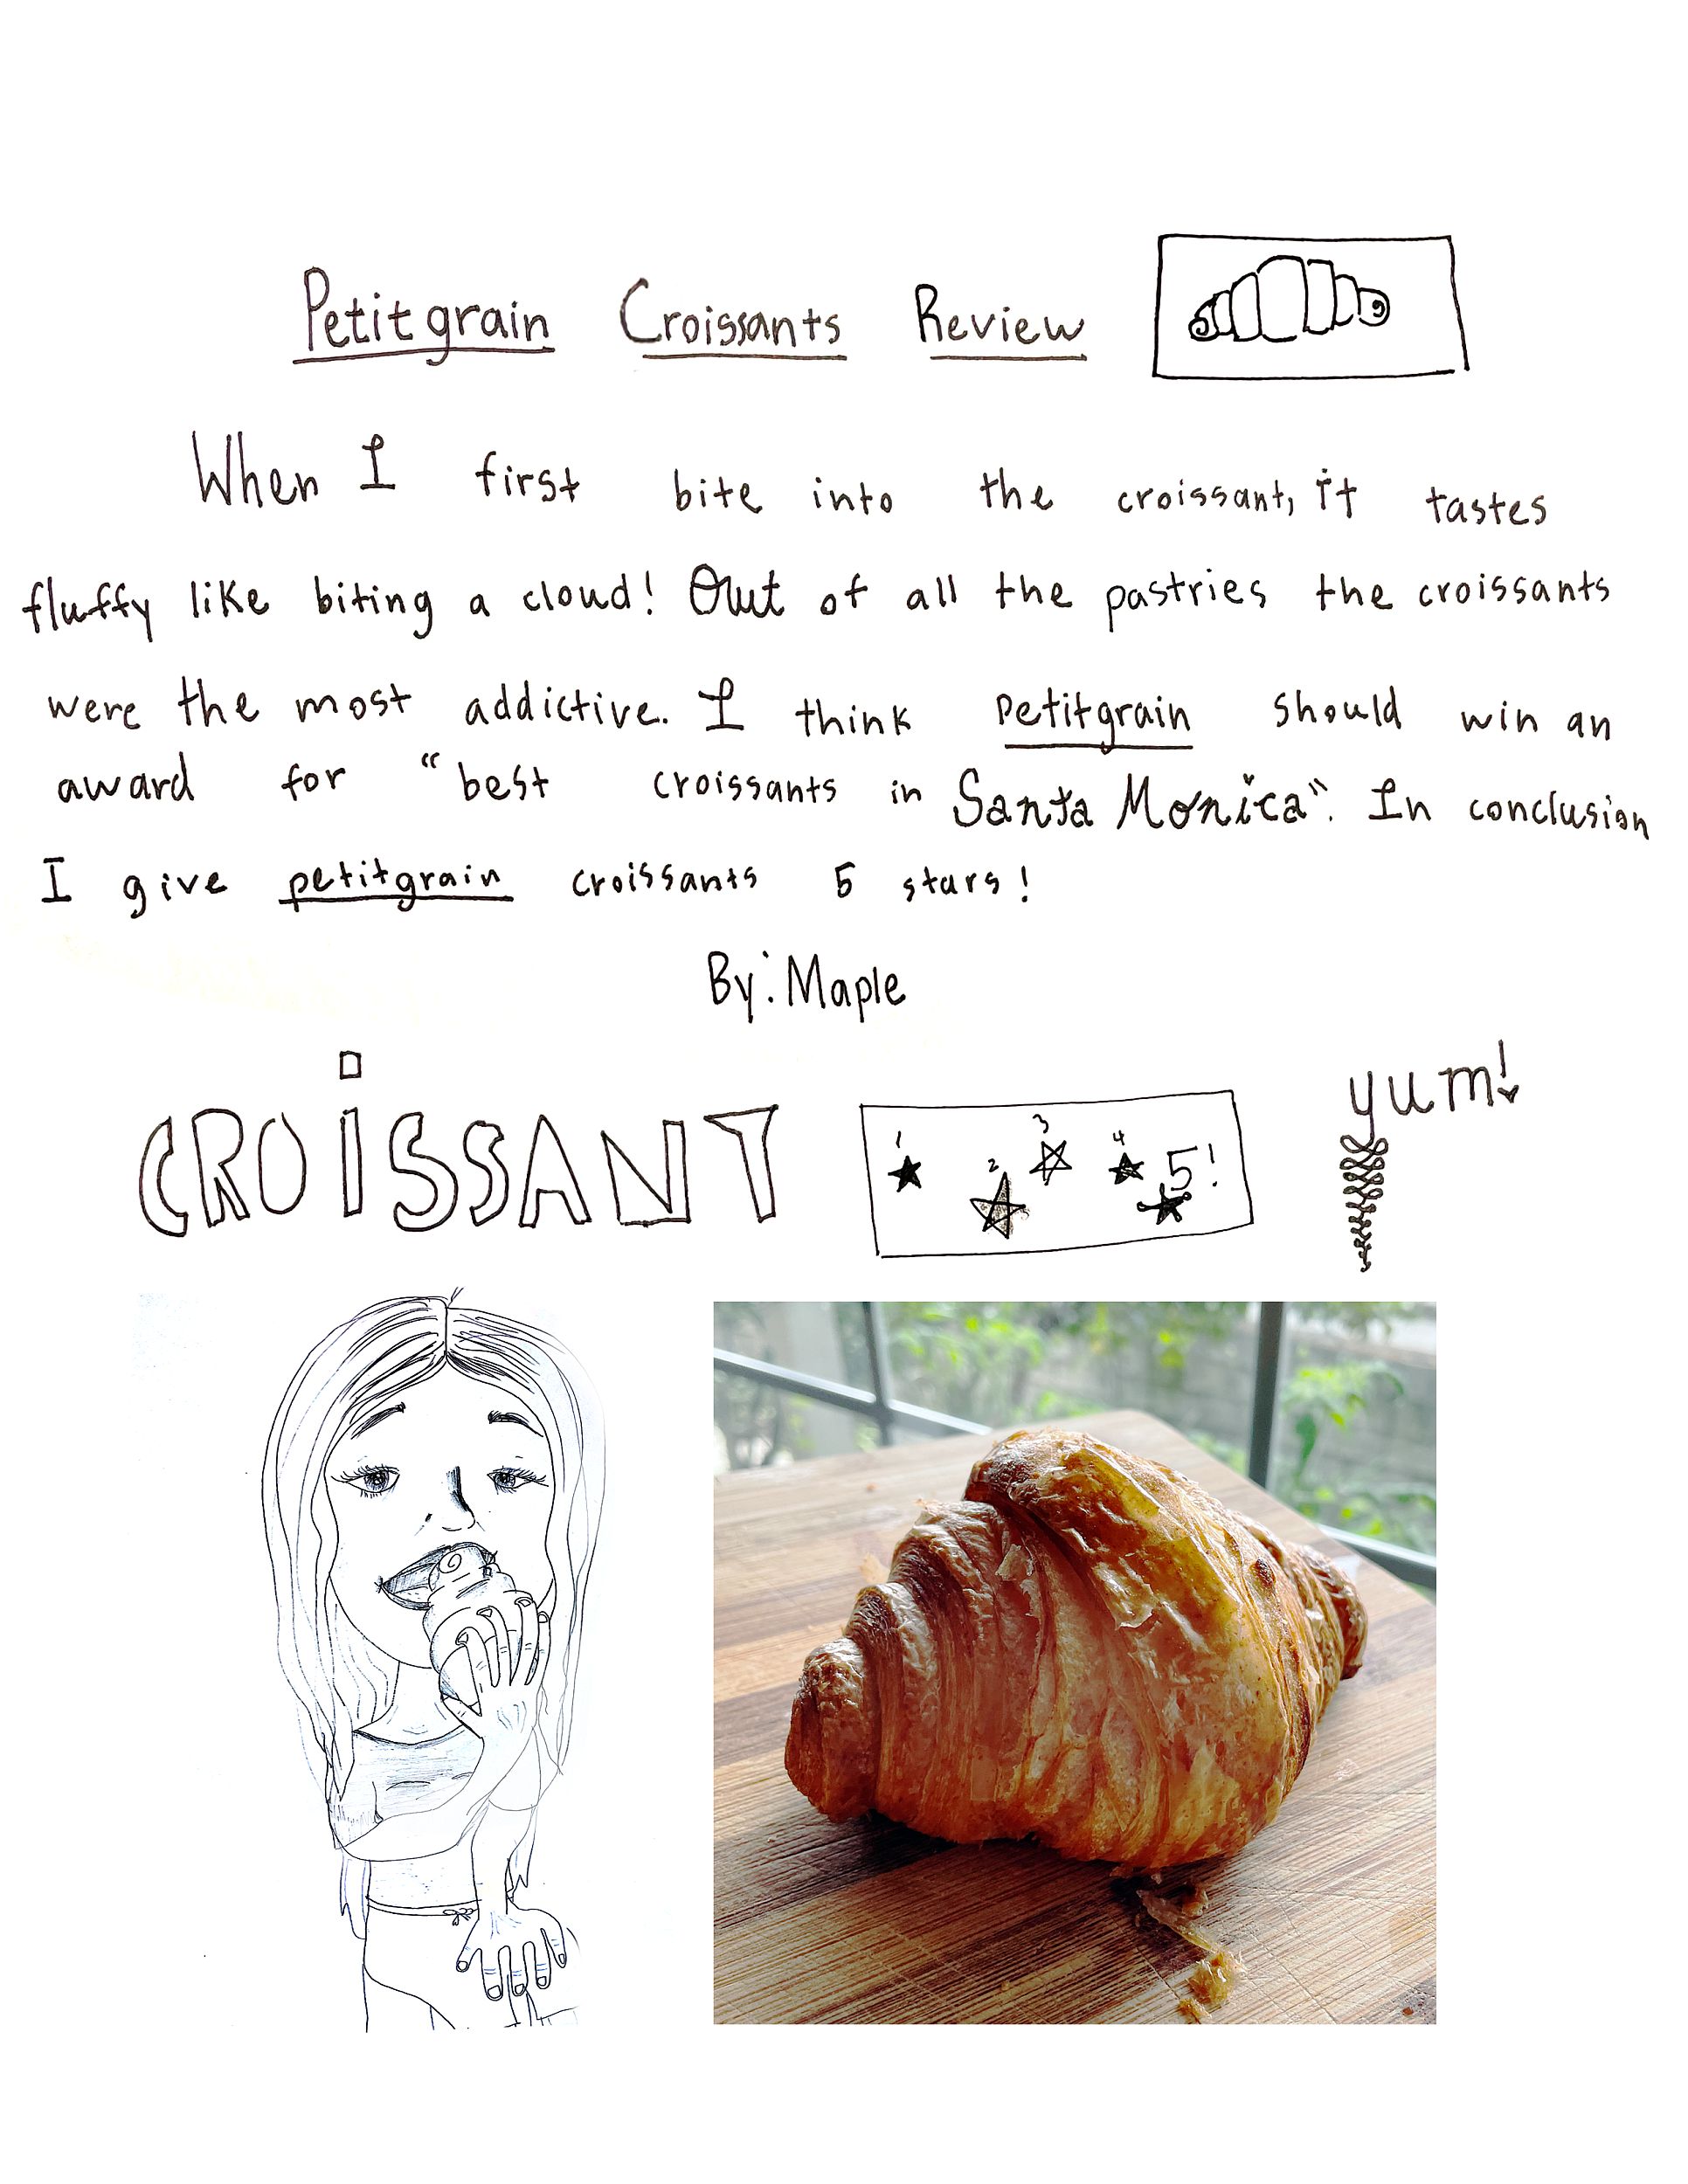 Petitgrain Croissants Review
When I first bite into the croissant, it tastes
fluffy like biting a cloud! Out of all the pastries the croissants
were the most addictive. I think petitgrain should win an
award for "best croissants in Santa Monica". In conclusion
I give petitgrain croissants 5 stars!
By: Maple
CROiSSANT
1 2 3 4 5!
yum!